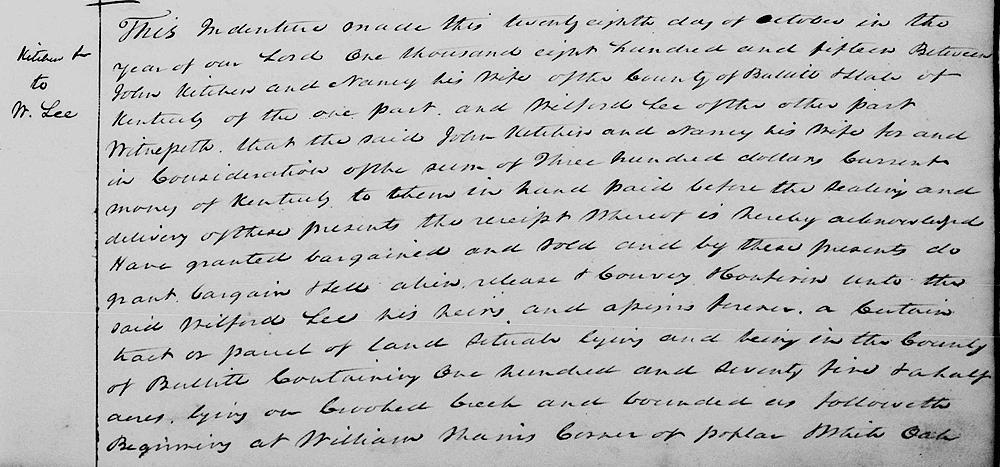 Kitchen &c
to
W. Lee
This Indenture made this twenty eighth day of October in the
year of our Lord One thousand eight hundred and fifteen Between
John Kitchen and Nancy his Wife of the County of Bullitt & State of
Kentucky of the one part. and Wilford Lee of the other part
Witnesseth. that the said John Kitchen and Nancy his Wife for and
in Consideration of the sum of Three hundred dollars Current
money of Kentucky to them in hand paid before the sealing and
delivery of these presents the receipt whereof is hereby acknowledged
Have granted bargained and sold and by these presents do
grant, bargain & sell alien, release & Convey & Confirm unto the
said Wilford Lee his heirs and assigns forever. a Certain
tract or parcel of land situate lying and being in the County
of Bullitt Containing One hundred and seventy five & a half
acres. lying on Crooked Creek and bounded as followeth
Beginning at William Corner of poplar & White Oak